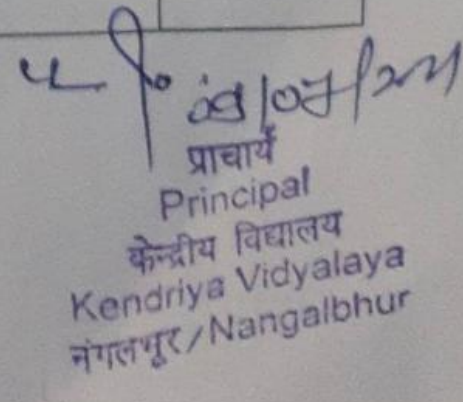 प्राचार्य
Principal
केन्द्रीय विद्यालय
Kendriya Vidyalaya
नंगलभूर/Nangalbhur